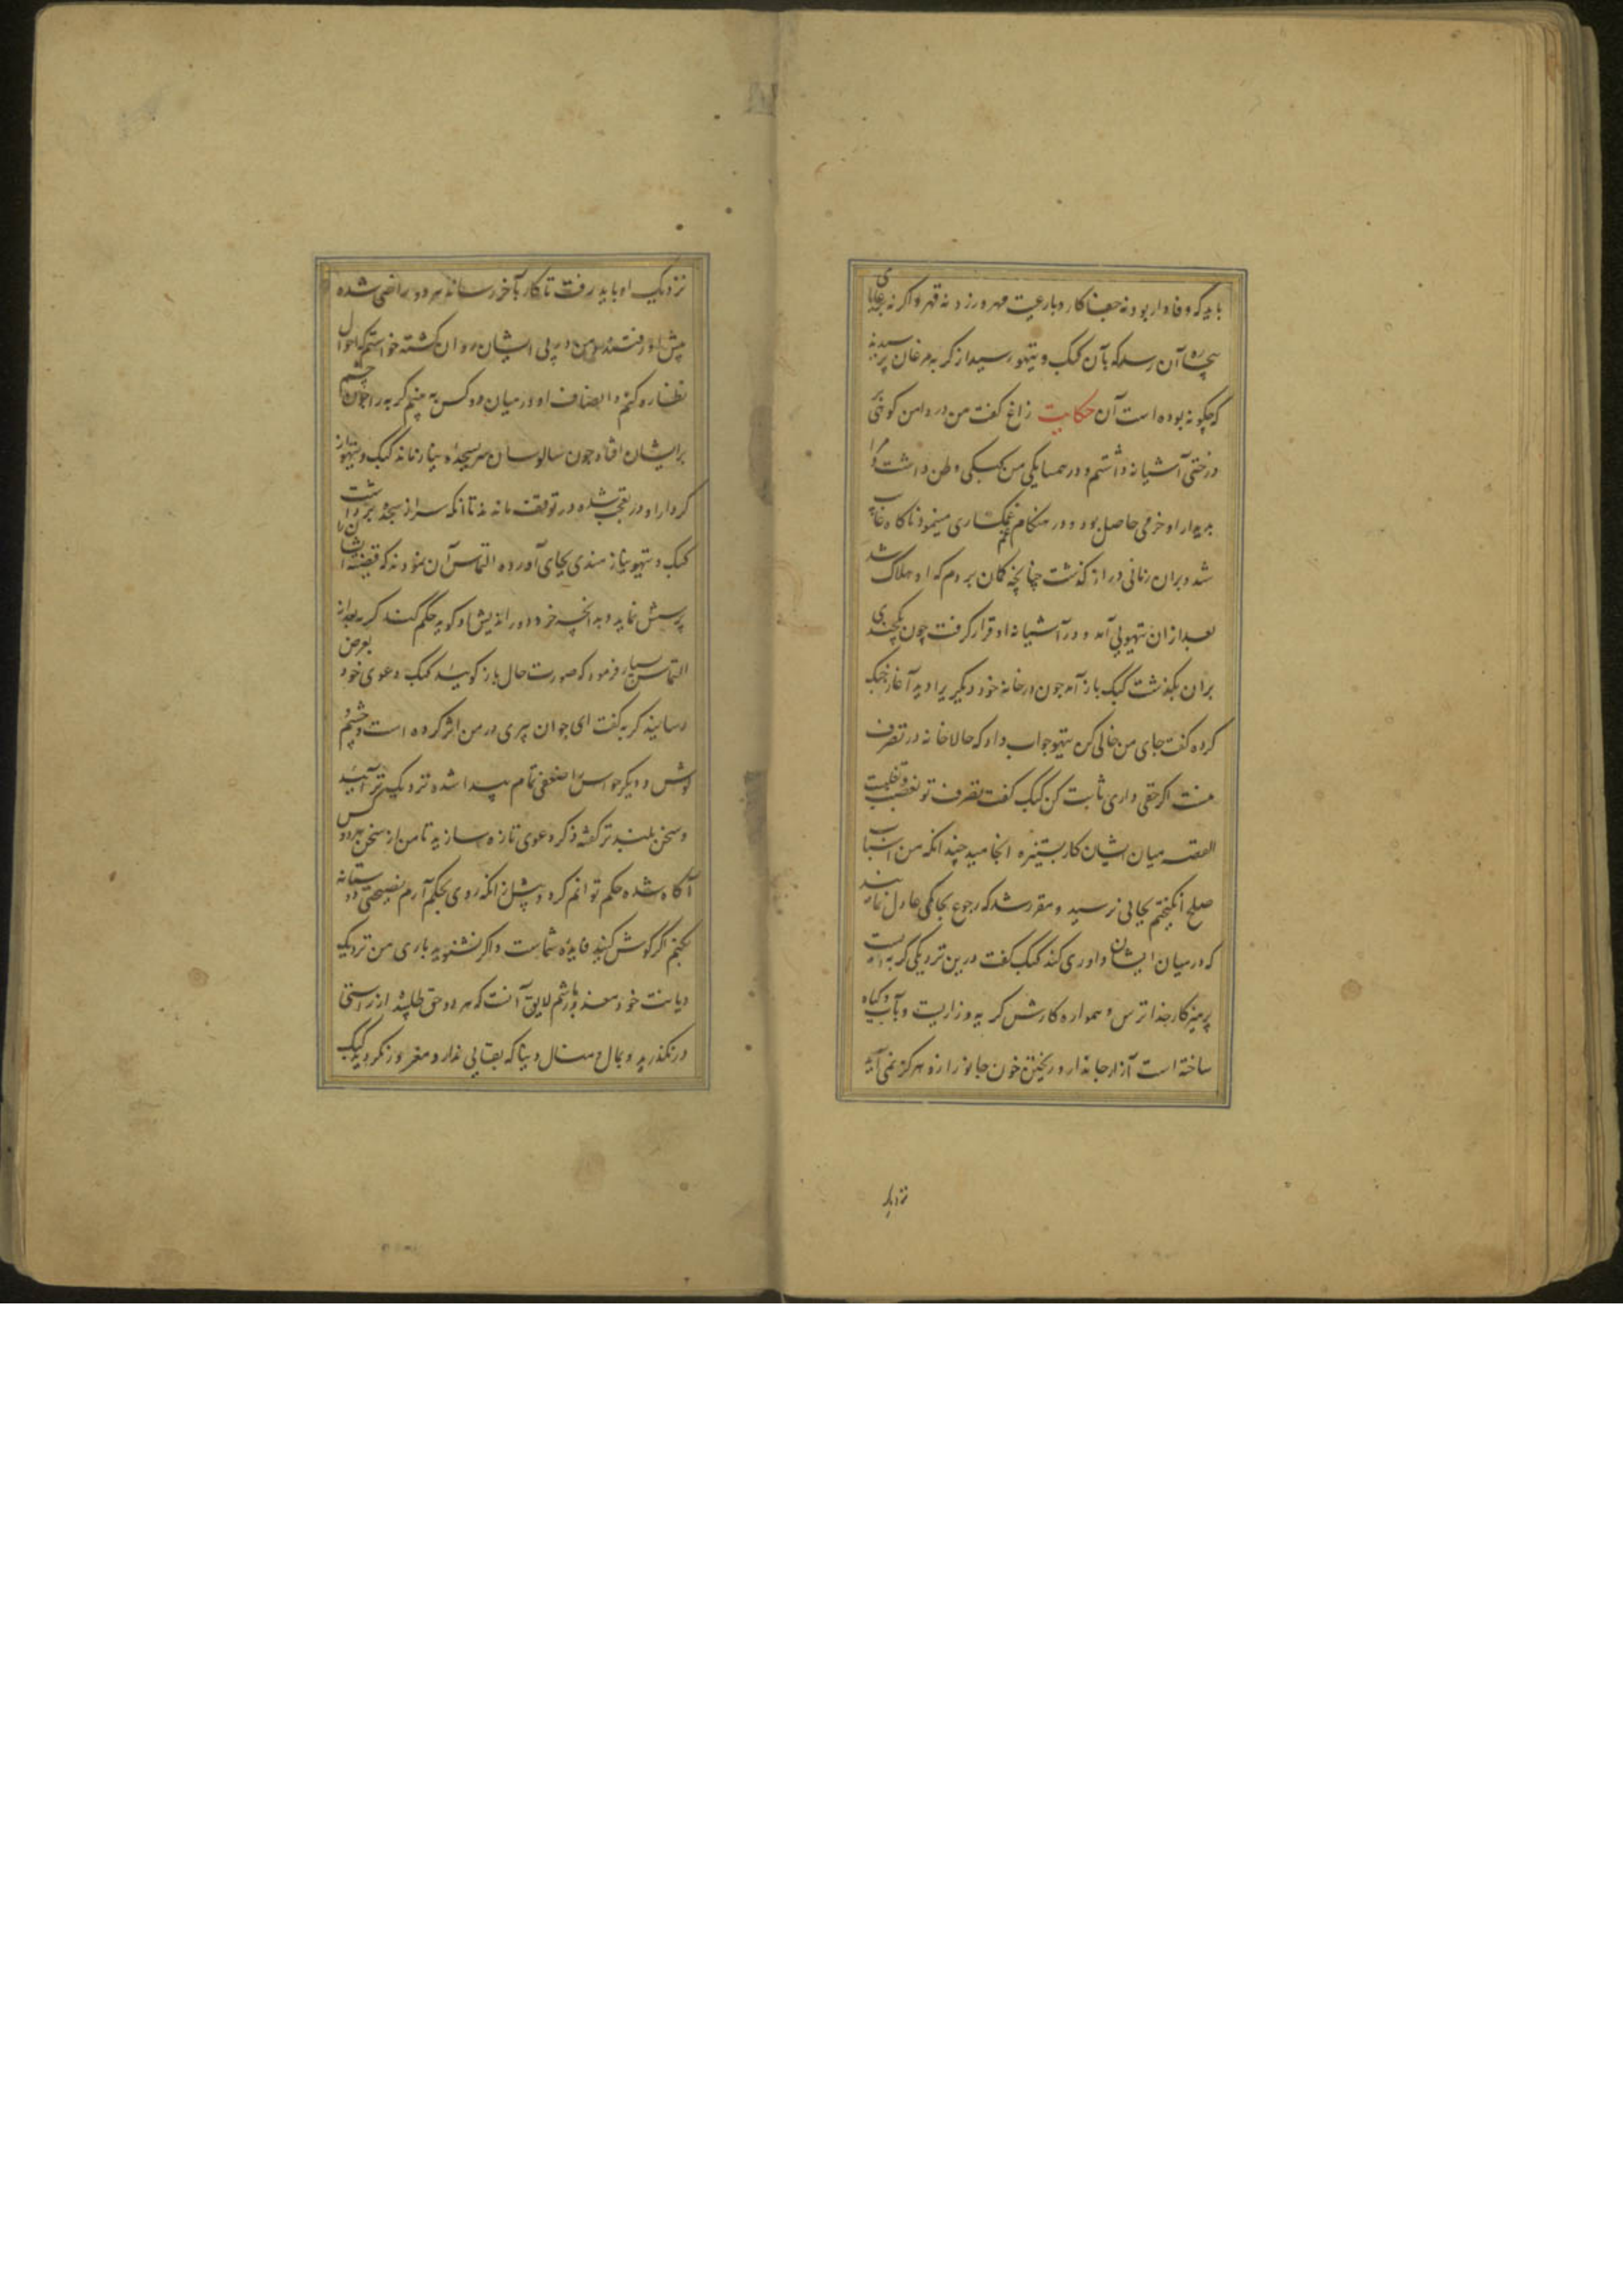 باید که وفادار بود نه جفا کار و با رعیت مهر ورزد نه قهر و اگر نه برعایای
بیچاره آن رسد که بآن کبک و تیهو رسید از گربه مرغان پرسیدند
که چگونه بوده است آن حکایت زاغ گفت من در دامن کوهی بر
درختی آشیانه داشتم و در همسایگی من کبکی وطن داشت مرا
بدیدار او خرمی حاصل بود و در هنکام غم غمکساری مینمود ناکاه غایب
شد و بران زمانی دراز گذشت چنانچه کمان بردم که او هلاک شد
بعد ازان تیهویی آمد و در آشیانه او قرار گرفت چون یکچندی
بران بگذشت کبک باز آمد چون در خانه خود دیگری را دید آغاز جنگ
کرده گفت جای من خالی کن تیهو جواب داد که حالا خانه در تصرف
منست اگر حقی داری ثابت کن کبک گفت تصرف تو بغصب و تغلبست
القصه میان ایشان کار بستیزه انجامید چندانکه من اسباب
صلح انگیختم بجایی نرسید و مقرر شد که رجوع بحاکمی عادل نمایند
که در میان ایشان داوری کند کبک گفت درین نزدیکی گربه ایست
پرهیزکار خدا ترس و همواره کارش گریه و زاریست و بآب و گیاه
ساخته است آزار جاندار و ریختن خون جانور ازو هرگز نمی آید
نزدیک
نزدیک او باید رفت تا کار بآخر رساند هر دو راضی شده
پیش او رفتند و من در پی ایشان روان گشته خواستم که احوال
نظاره کنم و انصاف او در میان دو کس به بینم گربه را چون چشم
برایشان افتاد چون سالوسان سر بسجده نیاز نهاد کبک و تیهو از
کردار او در تعجب شده در توقف ماندند تا آنکه سر از سجده برداشت
کبک و تیهو نیازمندی بجای آورده التماس آن نمودند که قضیه ایشان را
پرسش نماید و بدانچه خرد دور اندیش او گوید حکم کند گربه بعد از
التماس بسیار فرمود که صورت حال باز گویید کبک دعوی خود بعرض
رسانید گربه گفت ای جوان پیری در من اثر کرده است و چشم و
گوش و دیگر حواس را ضعفی تمام پیدا شده نزدیک تر آیید
و سخن بلند تر گفته ذکر دعوی تازه سازید تا من از سخن هر دو کس
آگاه شده حکم توانم کرد و پیش ازانکه روی بحکم آرم نصیحتی دوستانه
بکنم اگر گوش کنید فایده شماست و اگر نشنوید باری من نزدیک
دیانت خود معذور باشم لایق آنست که هر دو حق طلبید از راستی
در نگذرید و بمال و منال دنیا که بقایی ندارد مغرور نگردید کبک